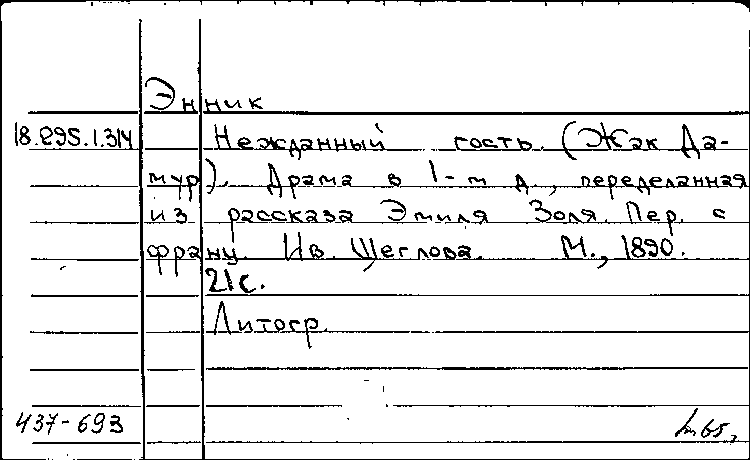 Энник
18.295.1.314 Нежданный гость. (Жак Да-
мур). Драма в 1-м д., переделанная
из рассказа Эмиля Золя. Пер. с
франц. Ив. Щеглова. М., 1890.
21с.
Литогр.
437-693